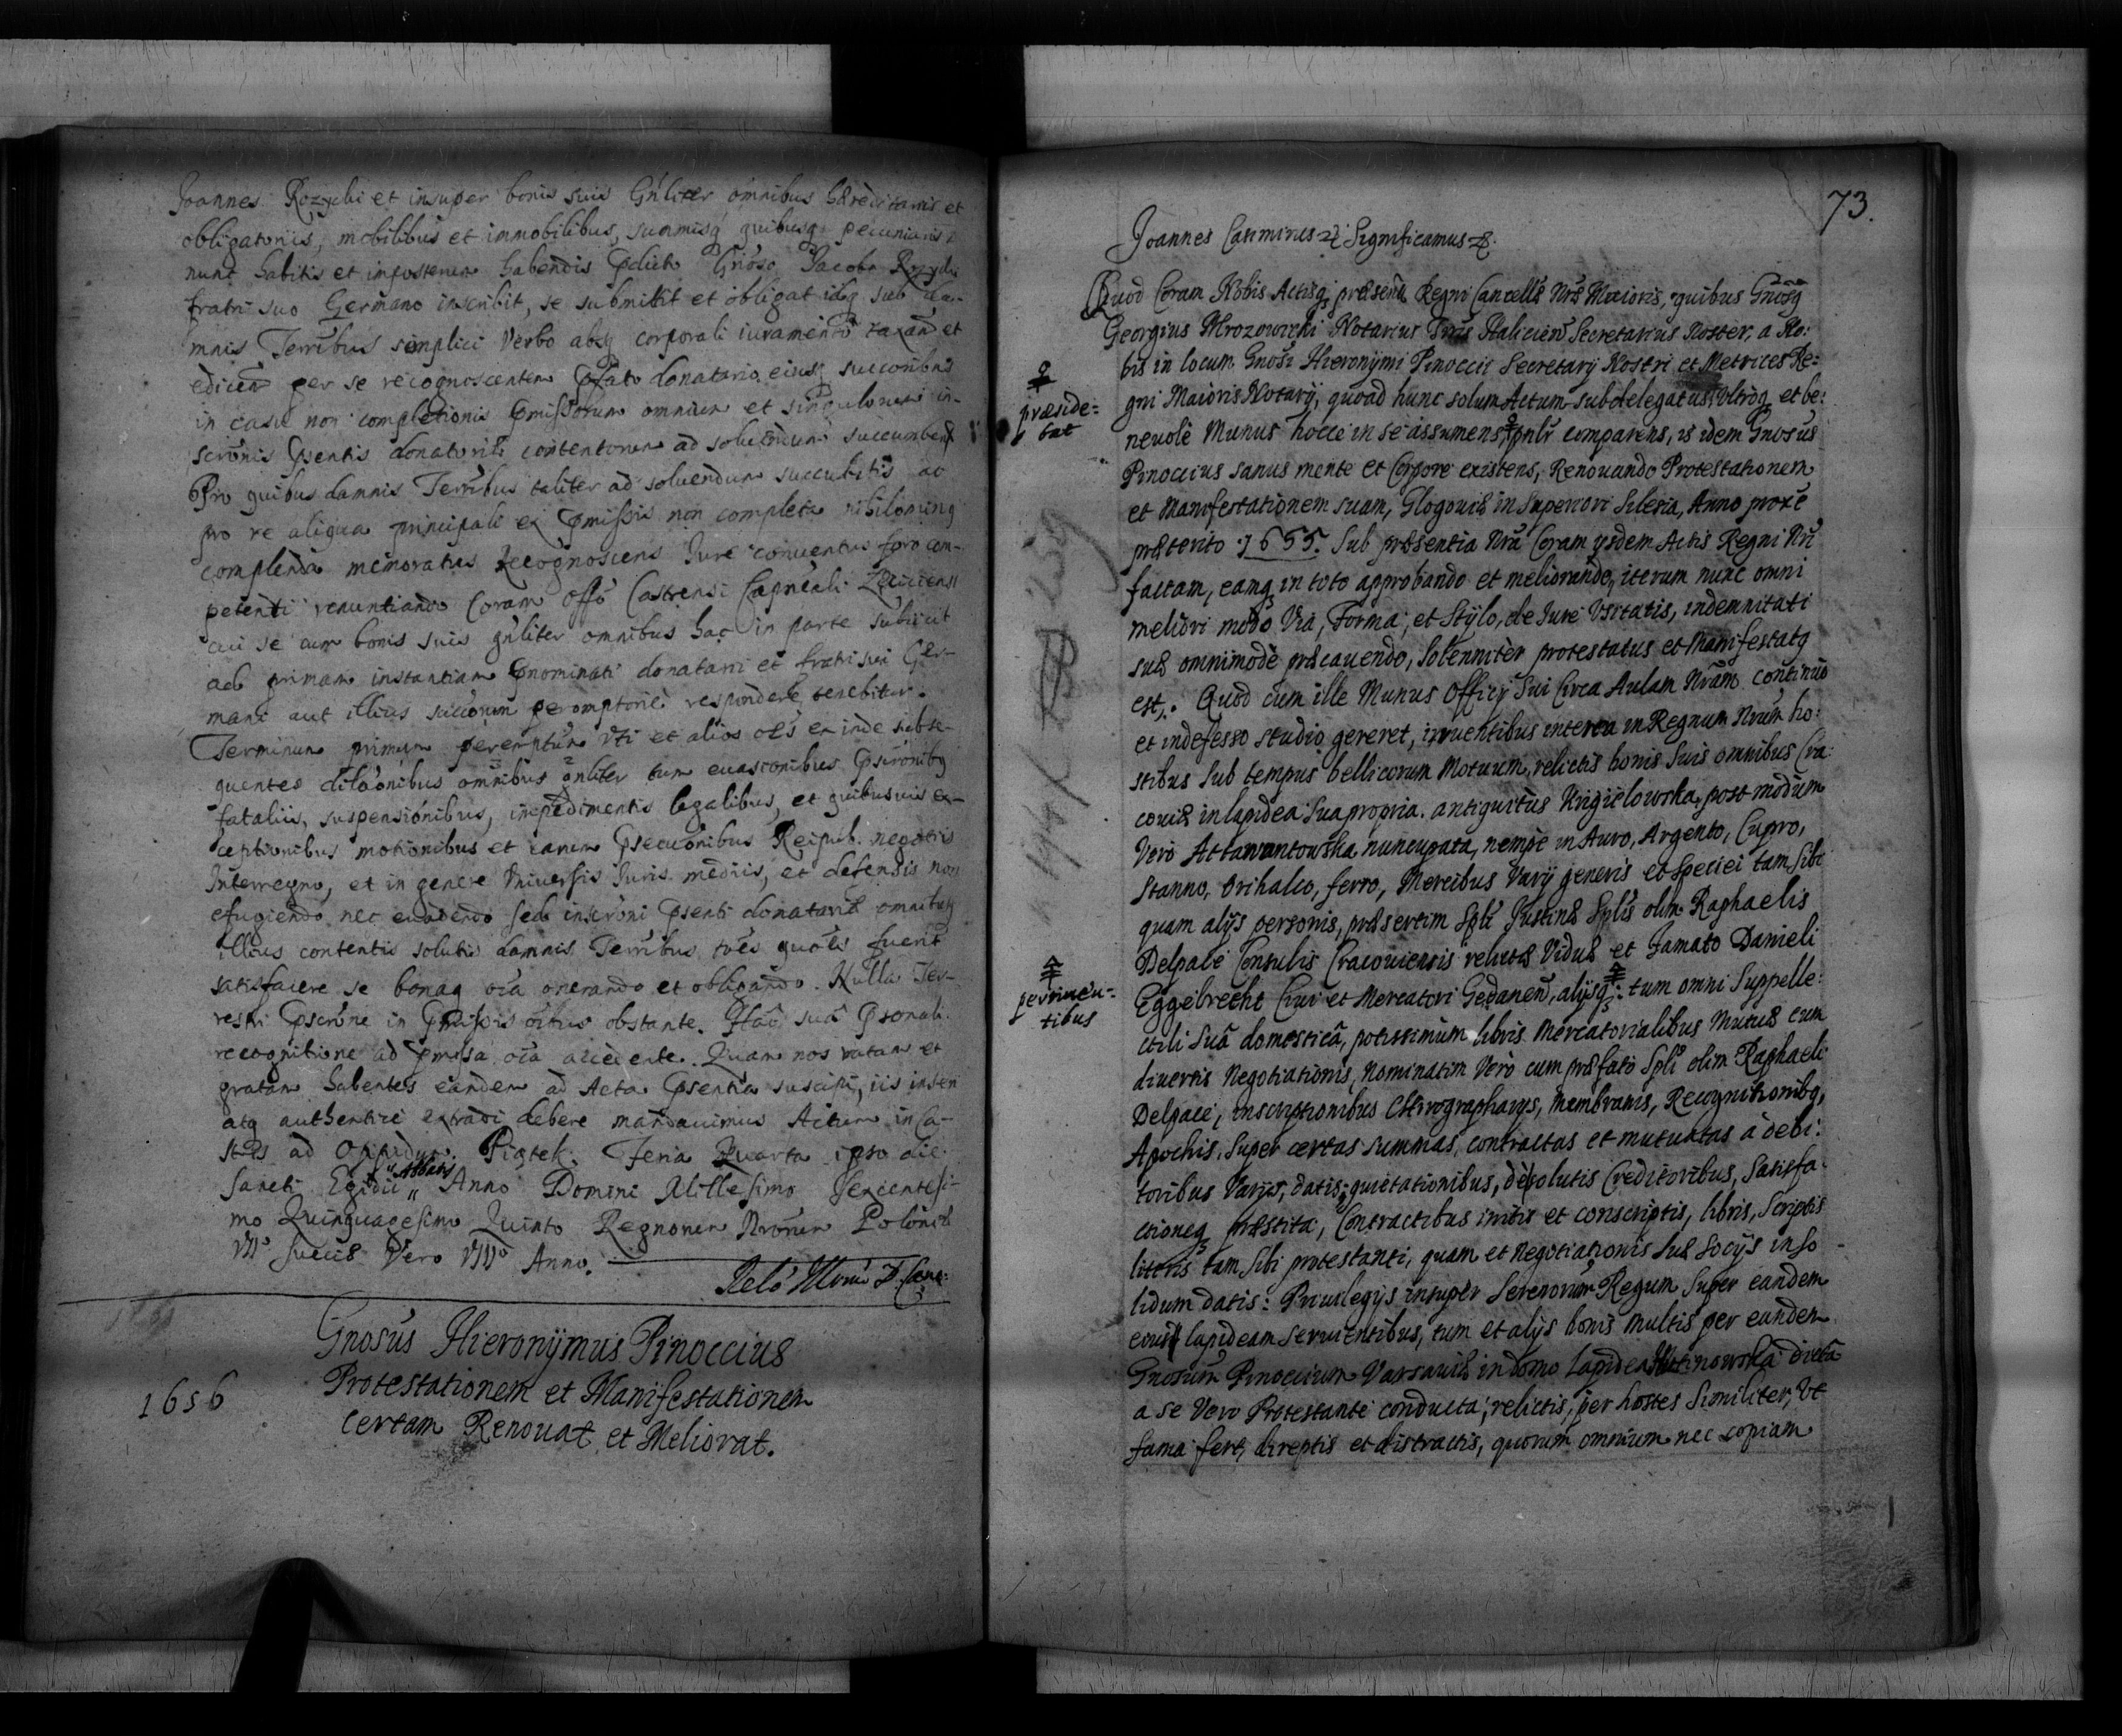 Joannes Rozycki et insuper bonis suis Gńliter omnibus hæreditariis et
obligatoriis, mobilibus et immobilibus, summisq quibusq pecuniariis
nunc habitis et inposterum habendis pdicto Gńoso Jacobo Rozycki
fratri suo Germano inscribit, se submittit et obligat idq sub da-
mnis Terribus simplici Verbo absq corporali iuramento taxand et
edicen per se recognoscentem pfato donatario eiusq succoribus
in casu non completionis pmissorum omnium et singulorum in-
scronis psentis donatoriæ contentorum ad soluendum succumbend
Pro quibus damnis Terribus taliter ad soluendum succubitis ac
pro re aliqua principali ex pmissis non completa nihilominq
complenda memoratus Recognoscens Jure conuentus foro com-
petenti renuntiando Coram offo Castrensi Capneali
cui se cum bonis suis gńliter omnibus hac in parte subiicit
ad primam instantiam pnominati donatarii et fratri sui Ger-
mani aut illius succorum peremptorie respondere tenebitur.
Terminum primum peremptũm vti et alios oẽs ex inde subse-
quentes dilõonibus omnibus gnliter tum euasionibus
fataliis, suspensionibus, impedimentis legalibus, et quibusuis ex-
ceptionibus motionibus et earum psecuõnibus Reipub. negotiis
Interregno, et in genere Vniuersis Juris mediis, et defensis non
efugiendo nec euadendo sed inscroni psenti donatoriæ omnibusq
illius contentis solutis damnis Terribus toties quoties fuerit
satisfacere se bonaq oĩa onerando et obligando. Nulla Ter-
restri pscrone in pmissis oibus obstante. Hac sua psonali
recognitione ad pmissa oĩa accedente. Quam nos ratam et
gratam habentes eandem ad Acta psentia suscipi, iis inseri
atq authentice extradi debere mandauimus Actum in Ca-
stris ad Oppidum Piątek. Feria Quarta ipso die
Sancti Egidii „ Abbatis Anno Domini Millesimo Sexcentesi-
mo Quinquagesimo Quinto Regnorum Nrorum Poloniæ
VII° Sueciæ Vero VIII° Anno.
1656
Gnosus Hieronymus Pinoccius
Protestationem et Manifestationem
certam Renouat et Meliorat.
73.
Joannes Casimirus Significamus
Quod Coram Nobis Actisq præsentib Regni Cancellæ Nræ Maioris, quibus Gnosq
Georgius Mrozowicki Notarius Trris Halicień Secretarius Noster, a No:
bis in locum Gnosi Hieronymi Pinoccii Secretarij Nostri et Metrices Re:
gni Maioris Notarij, quoad hunc solum Actum subdelegatus, Vltroq et be:
neuole Munus hocce in se assumens, pntr comparens, is idem Gnosus
præside=
bat
Pinoccius sanus mente et Corpore existens, Renouando Protestationem
et Manifestationem suam, Glogouiæ in Superiori Silesia, Anno proxe
præterito 1655. Sub præsentia Nra Coram ysdem Actis Regni Nri
factam, eamq in toto approbando et meliorando, iterum nunc omni
meliori modo Via, Forma, et Stylo, de Jure Vsitatis, indemnitati
suæ omnimodè præcauendo, Solenniter protestatus et Manifestatq
est. Quod cum ille Munus Officij Sui Circa Aulam Nram continuo
et indefesso studio gereret, irruentibus interea in Regnum Nrum ho:
stibus Sub tempus bellicorum Motuum, relictis bonis Suis omnibus Cra:
couiæ in lapidea Sua propria. antiquitus Krigielowska, post modum
Vero Attawantowska nuncupata, nempe in Auro, Argento, Cupro,
Stanno, Orihalco, ferro, Mercibus Varij generis et speciei tam Sibi
quam alijs personis, præsertim Spli Justinæ Splis olim Raphaelis
Delpace Consulis Cracouiensis relictæ Viduæ et Famato Danieli
Eggebrecht Ciui et Mercatori Gedanen, alijsq: tum omni Suppelle:
pertinen=
tibus
ctili Suâ domesticâ, potissimùm libris Mercatorialibus Mutuæ cum
diuersis Negotiationis, Nominatim Verò cum præfato Spli olim Raphaeli
Delpace, inscriptionibus Chirographarijs, Membranis, Recognitionibq,
Apochis, Super certas Summas, contractas et mutuatas à debi:
toribus Varijs, datis, quietationibus, de solutis Creditoribus, Satisfa:
ctioneq præstita, Contractibus initis et conscriptis, libris, Scriptis
literis tam Sibi protestanti, quam et negotiationis suæ Socijs in so
lidum datis: Priuilegijs insuper Serenorum Regum Super eandem
eius lapideam seruientibus, tum et alijs bonis multis per eandem
Gnosum Pinoccium Varsauiæ in domo lapidea dicta
a se Vero Protestante conducta, relictis, per hostes Similiter, Vt
fama fert, direptis et distractis, quorum omnium nec copiam